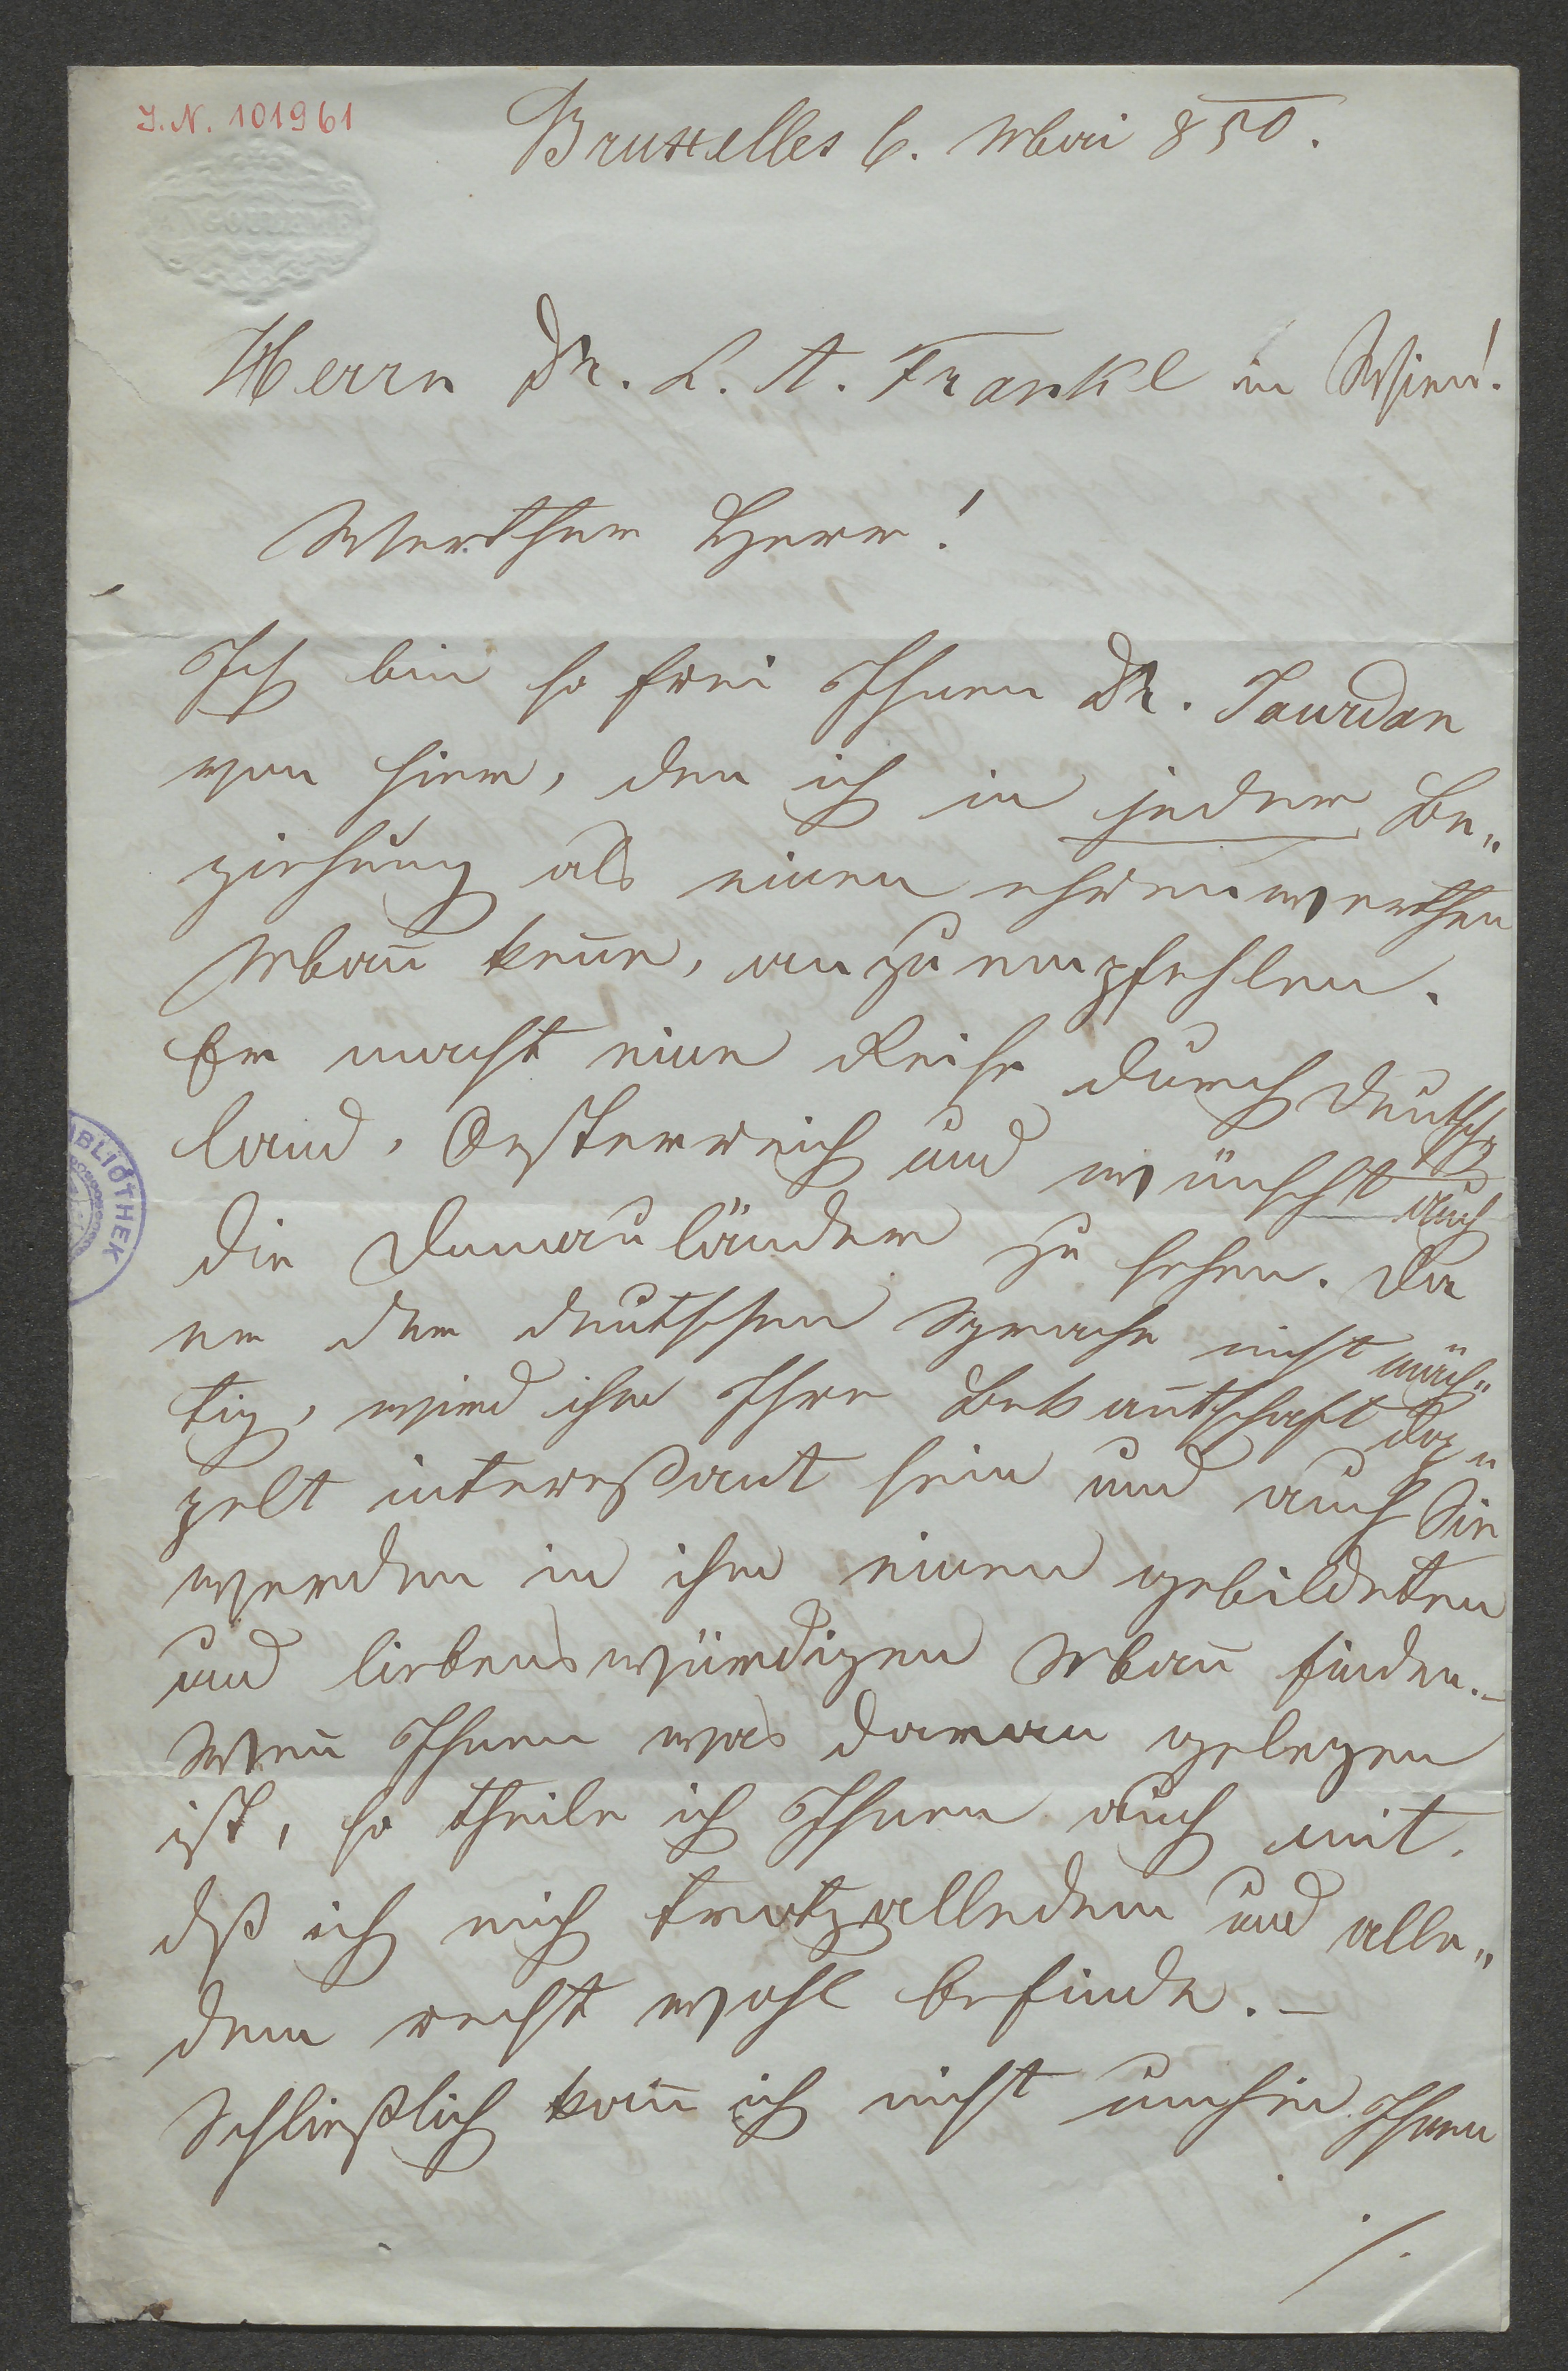 J. N. 101961
Bruxelles 6. Mai 850.
ANGOULEME
Herrn Dr. L. A. Frankl in Wien!
Werther Herr!
Ich bin so frei Ihnen Dr. Jourdan
von hier, den ich in jeder Be„
ziehung als einen ehrenwerthen
Man̄ ken̄e, anzuempfehlen.
Er macht eine Reise durch Deutsch
land, Oesterreich und wünscht auch
die Donauländer zu sehen. Da
er der deutschen Sprache nicht mäch„
tig, wird ihm Ihre Bekan̄tschaft dop„
pelt intereßant sein und auch Sie
werden in ihm einen gebildeten
und liebenswürdigen Man̄ finden.–
Wen̄ Ihnen was daran gelegen
ist, so theile ich Ihnen auch mit,
dß ich mich trotzalledem und alle„
dem recht wohl befinde.–
Schließlich kan̄ ich nicht umhin Ihnen
./.
BIBLIOTHEK